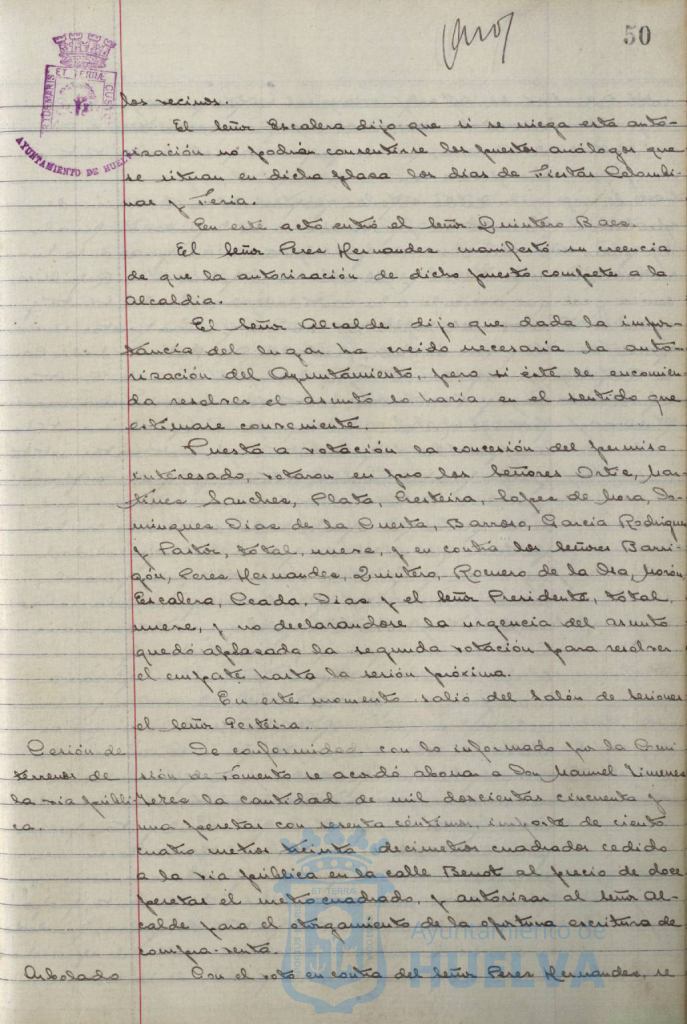 50
ET TERRA
AYUNTAMIENTO DE HUELVA
los vecinos.
El Señor Escalera dijo que si se niega esta auto-
rización no podrán consentirse los puestos análogos que
se situan en dicha plaza los días de Fiestas Colombi-
nas y Feria.
En este acto entró el Señor Quintero Baez.
El Señor Perez Hernandez manifestó su creencia
de que la autorización de dicho puesto compete a la
Alcaldia.
El Señor Alcalde dijo que dada la impor-
tancia del lugar ha creido necesaria la auto-
rización del Ayuntamiento, pero si éste le encomien-
da resolver el asunto lo haría en el sentido que
estimase conveniente.
Puesta a votación la concesión del permiso
interesado, votaron en pro los Señores Ortiz, Mar-
tinez Sanchez, Plata, Lopez de Mora, Do-
minguez Diaz de la Cuesta, Barroso, Garcia Rodriguez
y Pastor, total, nueve, y en contra los Señores Barri-
gón, Perez Hernandez, Quintero, Romero de la Osa, Morón,
Escalera, Diaz y el Señor Presidente, total,
nueve, y no declarandose la urgencia del asunto
quedó aplazada la segunda votación para resolver
el empate hasta la sesión próxima.
En este momento salió del Salón de Sesiones
el Señor
Cesión de De conformidad con lo informado por la Comi-
terrenos de sión de Fomento se acordó abonar a Don Manuel Jimenez
la via públi- Perez la cantidad de mil doscientas cincuenta y
ca. una pesetas con sesenta céntimos, importe de ciento
cuatro metros treinta decimetros cuadrados cedido
a la via pública en la calle Benot al precio de doce
pesetas el metro cuadrado, y autorizar al Señor Al-
calde para el otorgamiento de la oportuna escritura de
compra-venta.
Arbolado Con el voto en contra del Señor Perez Hernandez, se
Ayuntamiento de
HUELVA